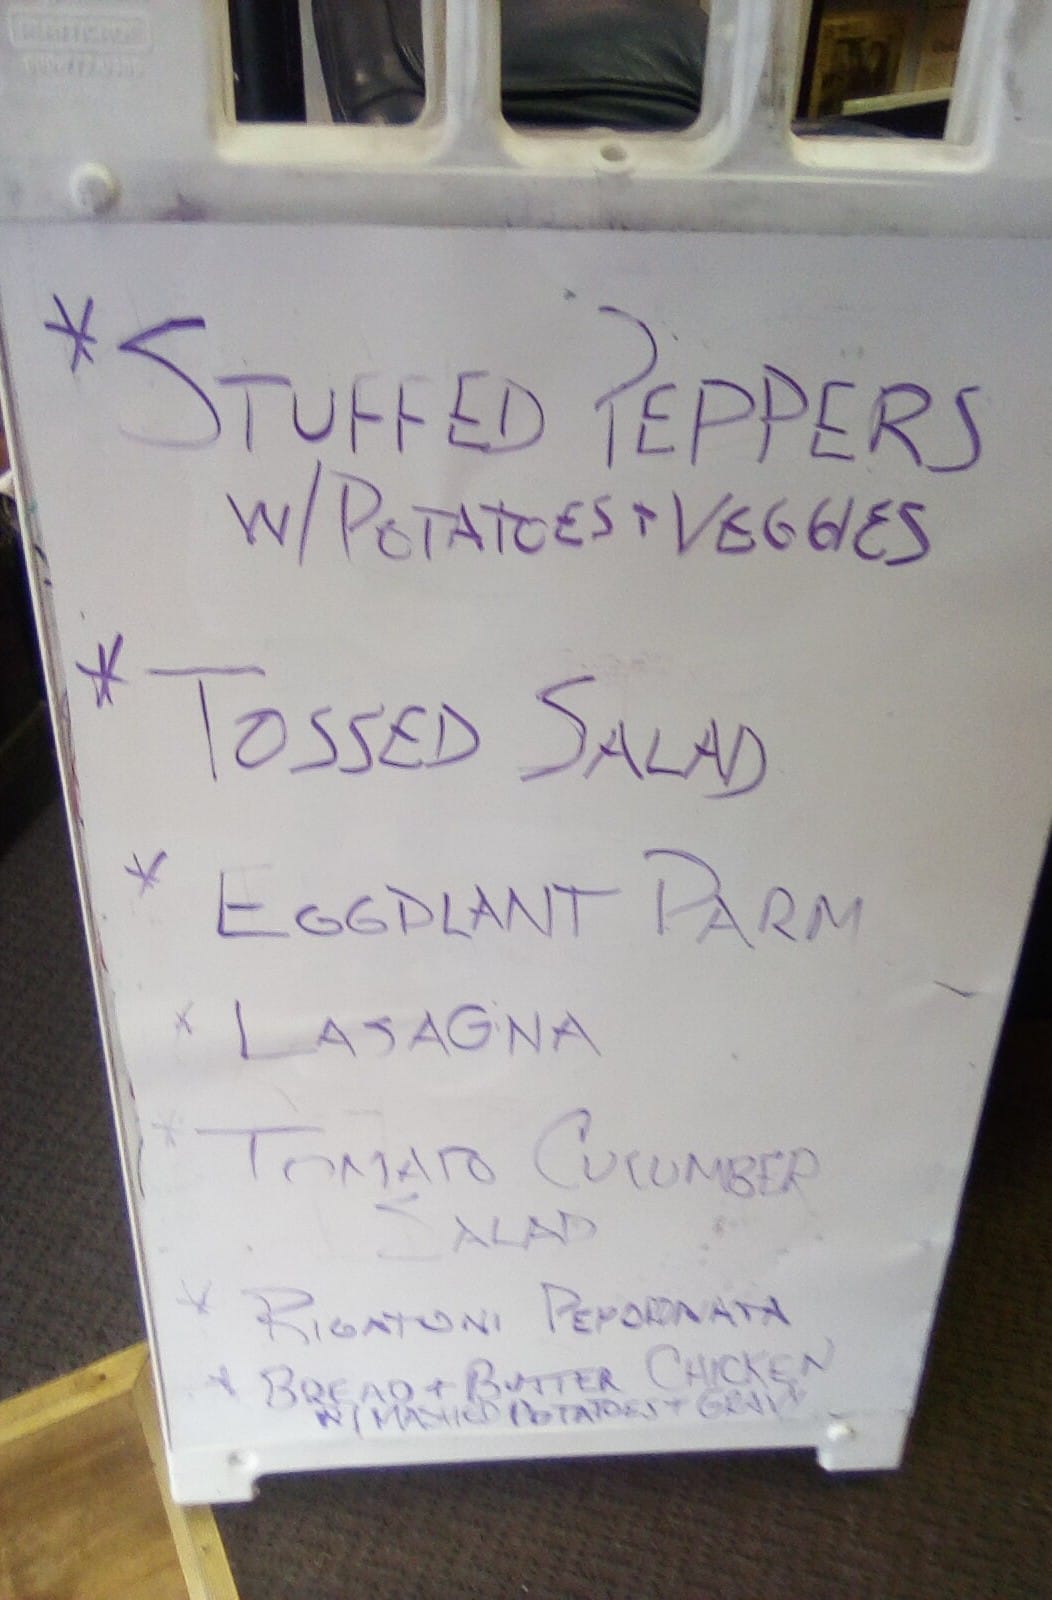 * STUFFED PEPPERS
W/ POTATOES + VEGGIES
* TOSSED SALAD
* EGGPLANT PARM
* LASAGNA
* TOMATO CUCUMBER
SALAD
* RIGATONI PEPORONATA
* BREAD + BUTTER CHICKEN
W/ MASHED POTATOES + GRAVY